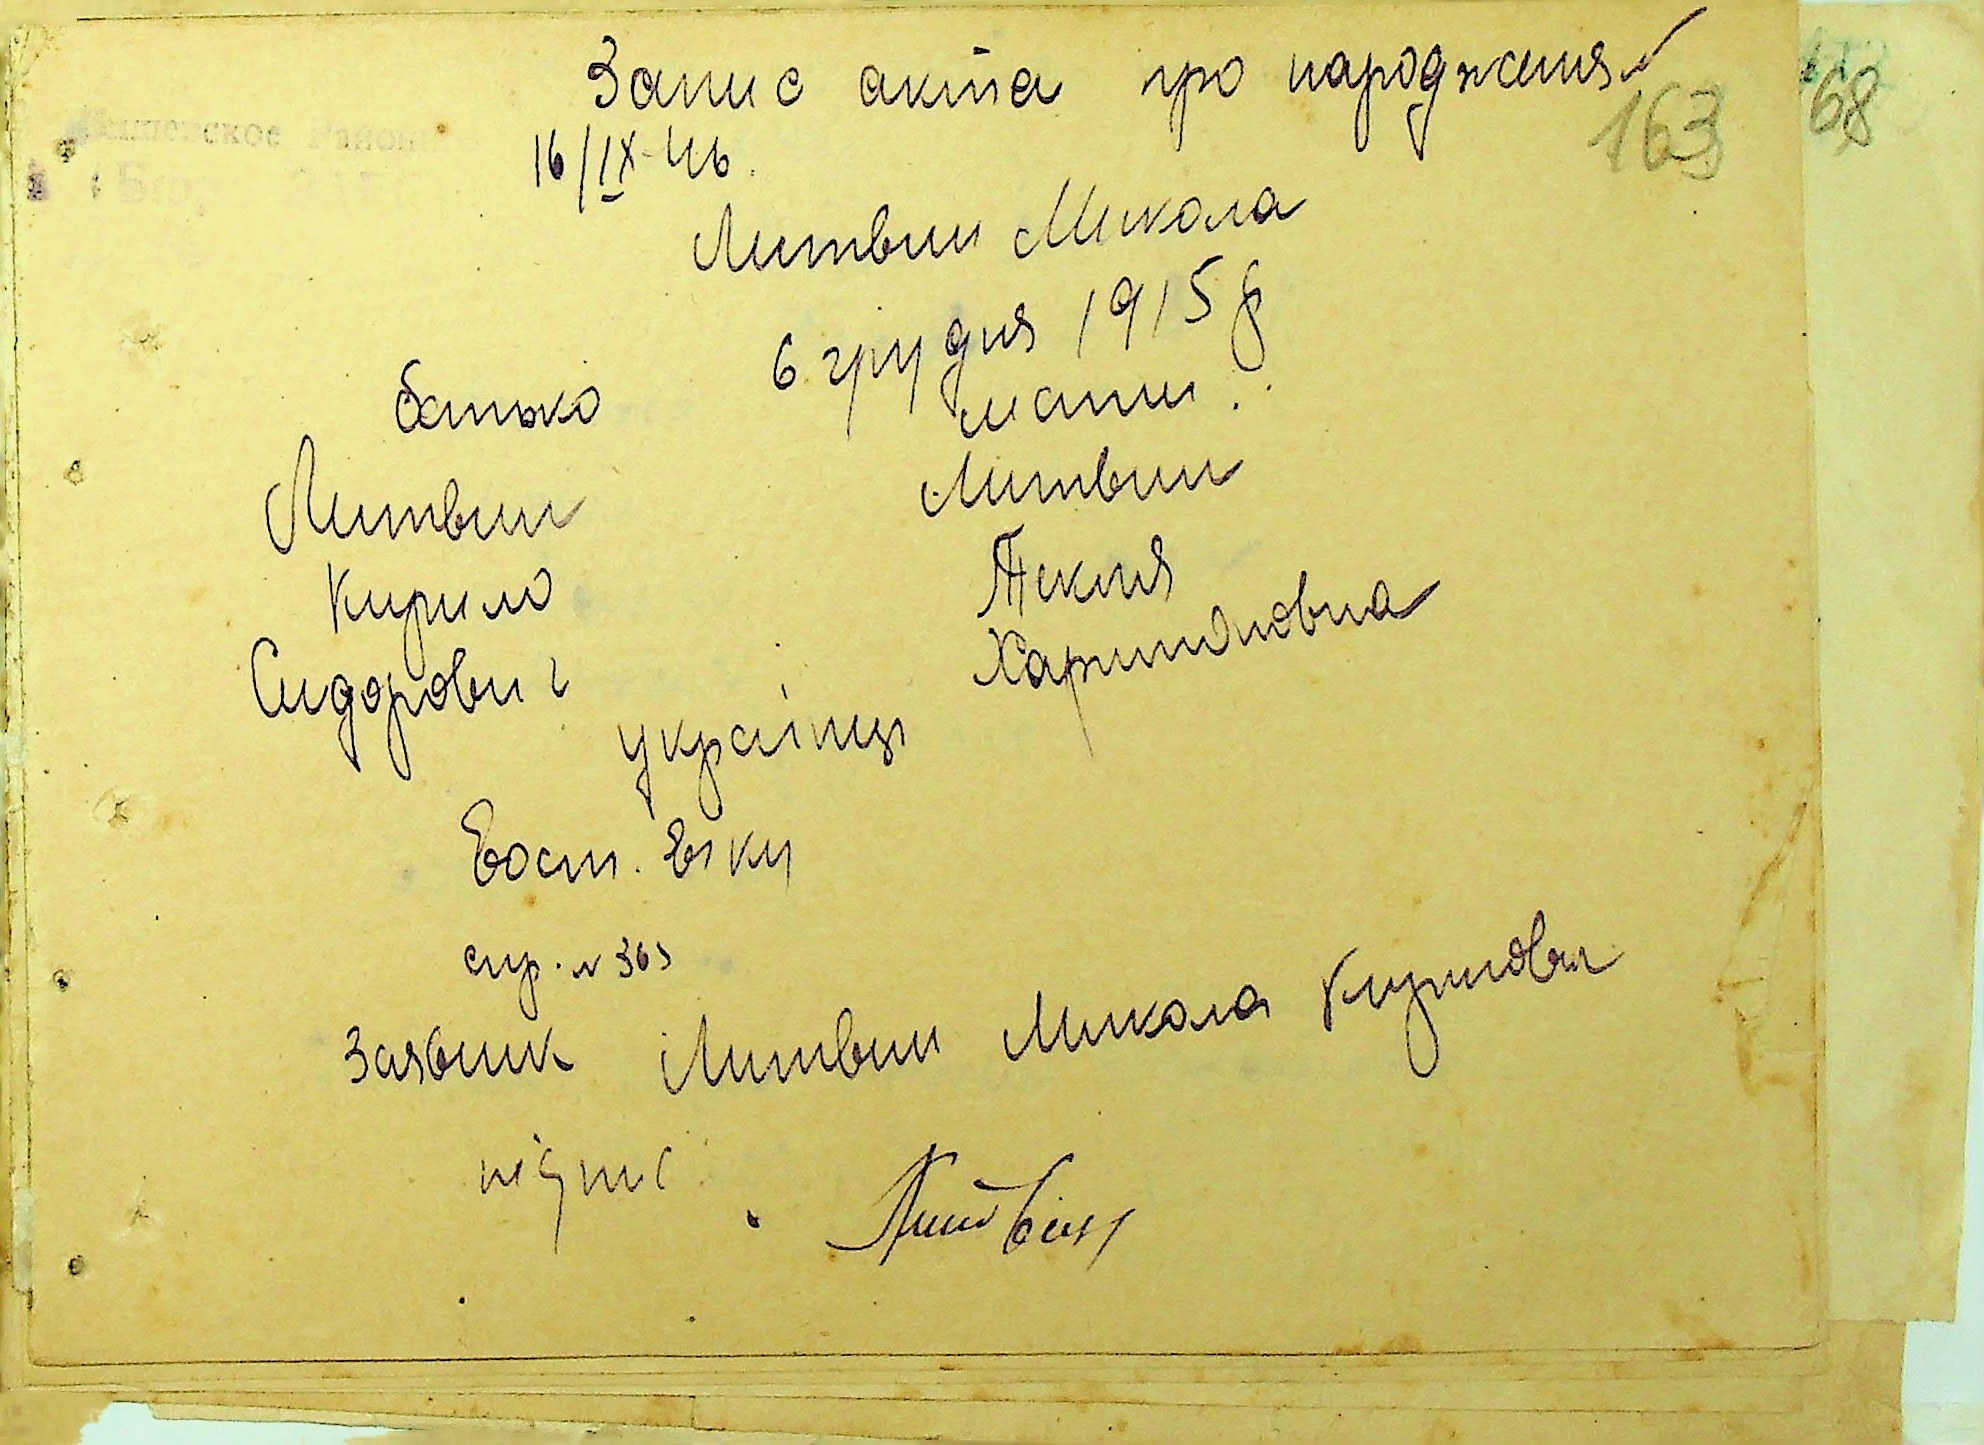 Запис акта про народження
163
68
16/IX-46.
Литвин Микола
6 грудня 1915 р
батько мати.
Литвин Литвин
Кирило Текля
Сидорович Харитоновна
українці
спр. № 363
Заявник Литвин Микола Кирилович
підпис Литвин